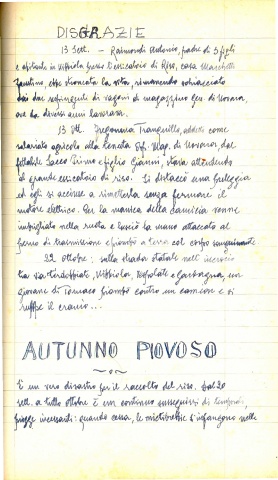 DISGRAZIE
13 Sett. - Raimondi Antonio, padre di 5 figli
e abitante in Nibbiola presso Essiccatoio di Riso, casa Marchetti
Faustino, ebbe stroncata la vita, rimanendo schiacciato
dai due respingenti di vagoni al magazzino Gen. di Novara,
ove da diversi anni lavorava.
13 Ott. Tranquillo, addetto come
salariato agricolo alla tenuta Osp. Mag. di Novara, dal
fittabile Sacco Primo e figlio Gianni, stava attendendo
al grande essiccatoio di riso. Si distaccò una puleggia
ed egli si accinse a rimetterla senza fermare il
motore elettrico. Per la manica della camicia venne
impigliato nella ruota e lasciò la mano attaccata al
perno di trasmissione e piombò a terra col corpo sanguinante
22 ottobre: sulla strada statale nell'incrocio
tra via Terdobbiate, Nibbiola, Vespolate e Garbagna, un
giovane di Tornaco piombò contro un camion e si
ruppe il cranio...
AUTUNNO PIOVOSO
È un vero disastro per il raccolto del riso. Dal 20
sett. a tutto ottobre è un continuo susseguirsi di temporali,
piogge incessanti: quando cessa, le mietitrebbie s'infangono nelle